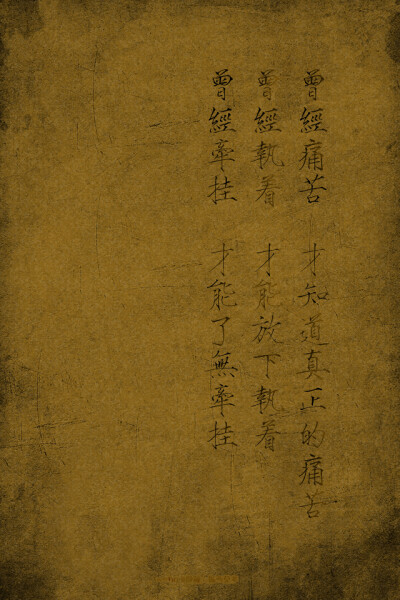 曾經痛苦 才知道真正的痛苦
曾經執着 才能放下執着
曾經牽挂 才能了無牽挂